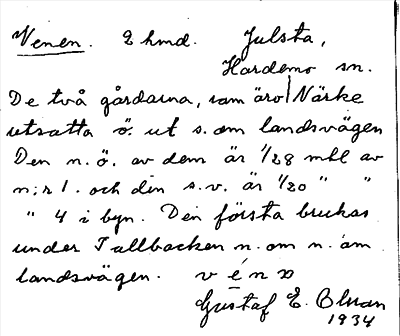 Venen. 2 hmd. Julsta,
Hardemo sn.
De två gårdarna, som äro Närke
utsatta ö. ut s. om landsvägen
Den n.ö. av dem är 1/28 mtl av
n:r 1. och den s.v. är 1/20 " "
" 4 i byn. Den första brukas
under Tallbacken n. om n. om
landsvägen. v é n ɒ
Gustaf E. Olsson
1934